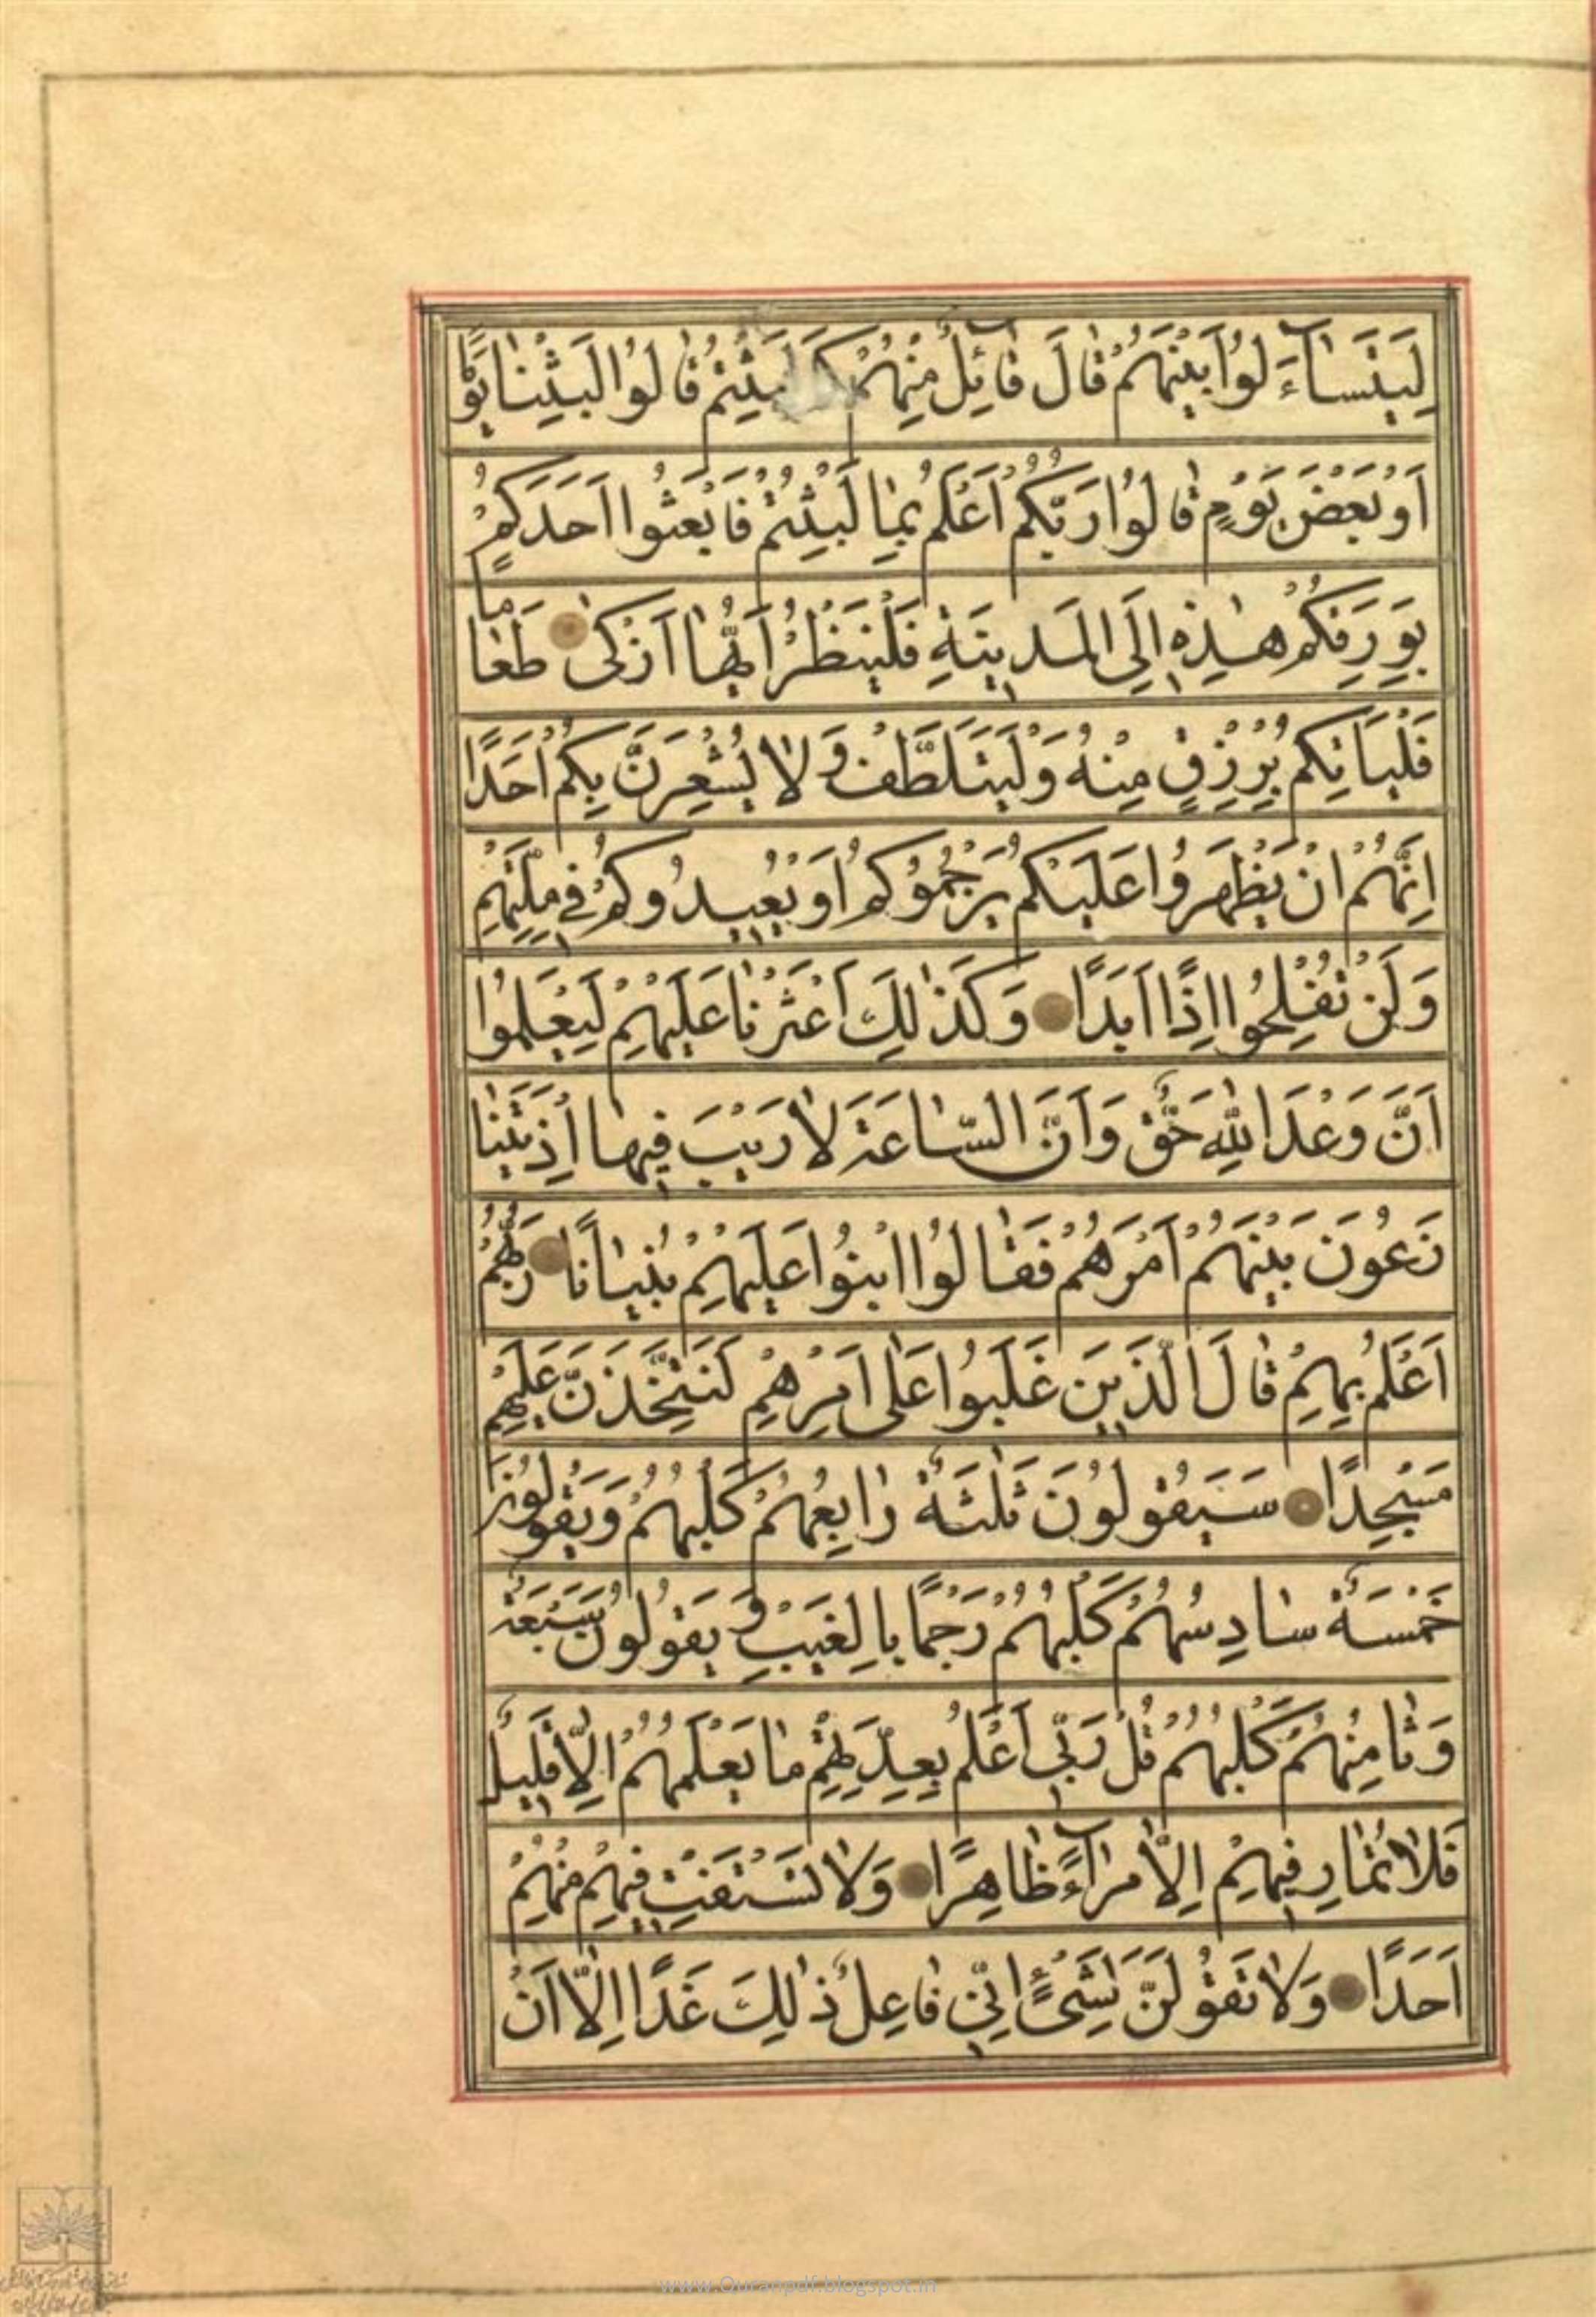 لِيَتَسٰآءَلُوا بَيْنَهُمْ قٰالَ قٰآئِلٌ مِنْهُمْ كَمْ لَبِثْتُمْ قٰالُوا لَبِثْنٰا يَوْمًا
اَوْ بَعْضَ يَوْمٍ قٰالُوا رَبُّكُمْ اَعْلَمُ بِمٰا لَبِثْتُمْ فَابْعَثُوا اَحَدَكُمْ
بِوَرِقِكُمْ هٰذِهِ اِلَى الْمَدِينَةِ فَلْيَنْظُرْ اَيُّهٰا اَزْكىٰ طَعٰامًا
فَلْيَاْتِكُمْ بِرِزْقٍ مِنْهُ وَلْيَتَلَطَّفْ وَلٰا يُشْعِرَنَّ بِكُمْ اَحَدًا
اِنَّهُمْ اِنْ يَظْهَرُوا عَلَيْكُمْ يَرْجُمُوكُمْ اَوْ يُعِيدُوكُمْ فِي مِلَّتِهِمْ
وَلَنْ تُفْلِحُوا اِذًا اَبَدًا وَكَذٰلِكَ اَعْثَرْنٰا عَلَيْهِمْ لِيَعْلَمُوا
اَنَّ وَعْدَ اللّٰهِ حَقٌّ وَاَنَّ السّٰاعَةَ لٰا رَيْبَ فِيهٰا اِذْ يَتَنٰا
زَعُونَ بَيْنَهُمْ اَمْرَهُمْ فَقٰالُوا ابْنُوا عَلَيْهِمْ بُنْيٰانًا رَبُّهُمْ
اَعْلَمُ بِهِمْ قٰالَ الَّذِينَ غَلَبُوا عَلٰى اَمْرِهِمْ لَنَتَّخِذَنَّ عَلَيْهِمْ
مَسْجِدًا سَيَقُولُونَ ثَلٰثَةٌ رٰابِعُهُمْ كَلْبُهُمْ وَيَقُولُونَ
خَمْسَةٌ سٰادِسُهُمْ كَلْبُهُمْ رَجْمًا بِالْغَيْبِ وَيَقُولُونَ سَبْعَةٌ
وَثٰامِنُهُمْ كَلْبُهُمْ قُلْ رَبِّي اَعْلَمُ بِعِدَّتِهِمْ مٰا يَعْلَمُهُمْ اِلّٰا قَلِيلٌ
فَلٰا تُمٰارِ فِيهِمْ اِلّٰا مِرٰآءً ظٰاهِرًا وَلٰا تَسْتَفْتِ فِيهِمْ مِنْهُمْ
اَحَدًا وَلٰا تَقُولَنَّ لِشَىْءٍ اِنِّي فٰاعِلٌ ذٰلِكَ غَدًا اِلّٰا اَنْ
www.Quranpdf.blogspot.in